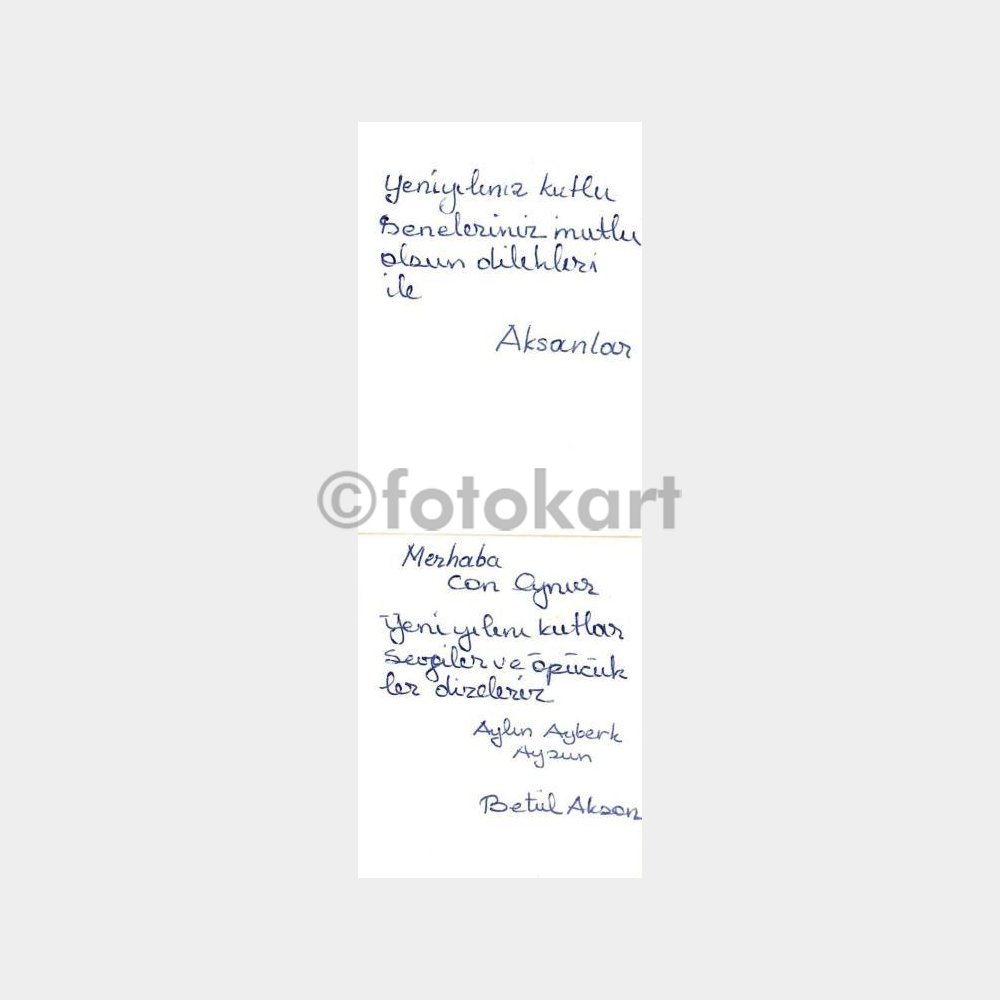 Yeniyılınız kutlu
Seneleriniz mutlu
olsun dilekleri
ile
Aksanlar
©fotokart
Merhaba
Can Aynur
Yeni yılını kutlar
sevgiler ve öpücük
ler dizeleriz
Aylin Ayberk
Aysun
Betül Aksan